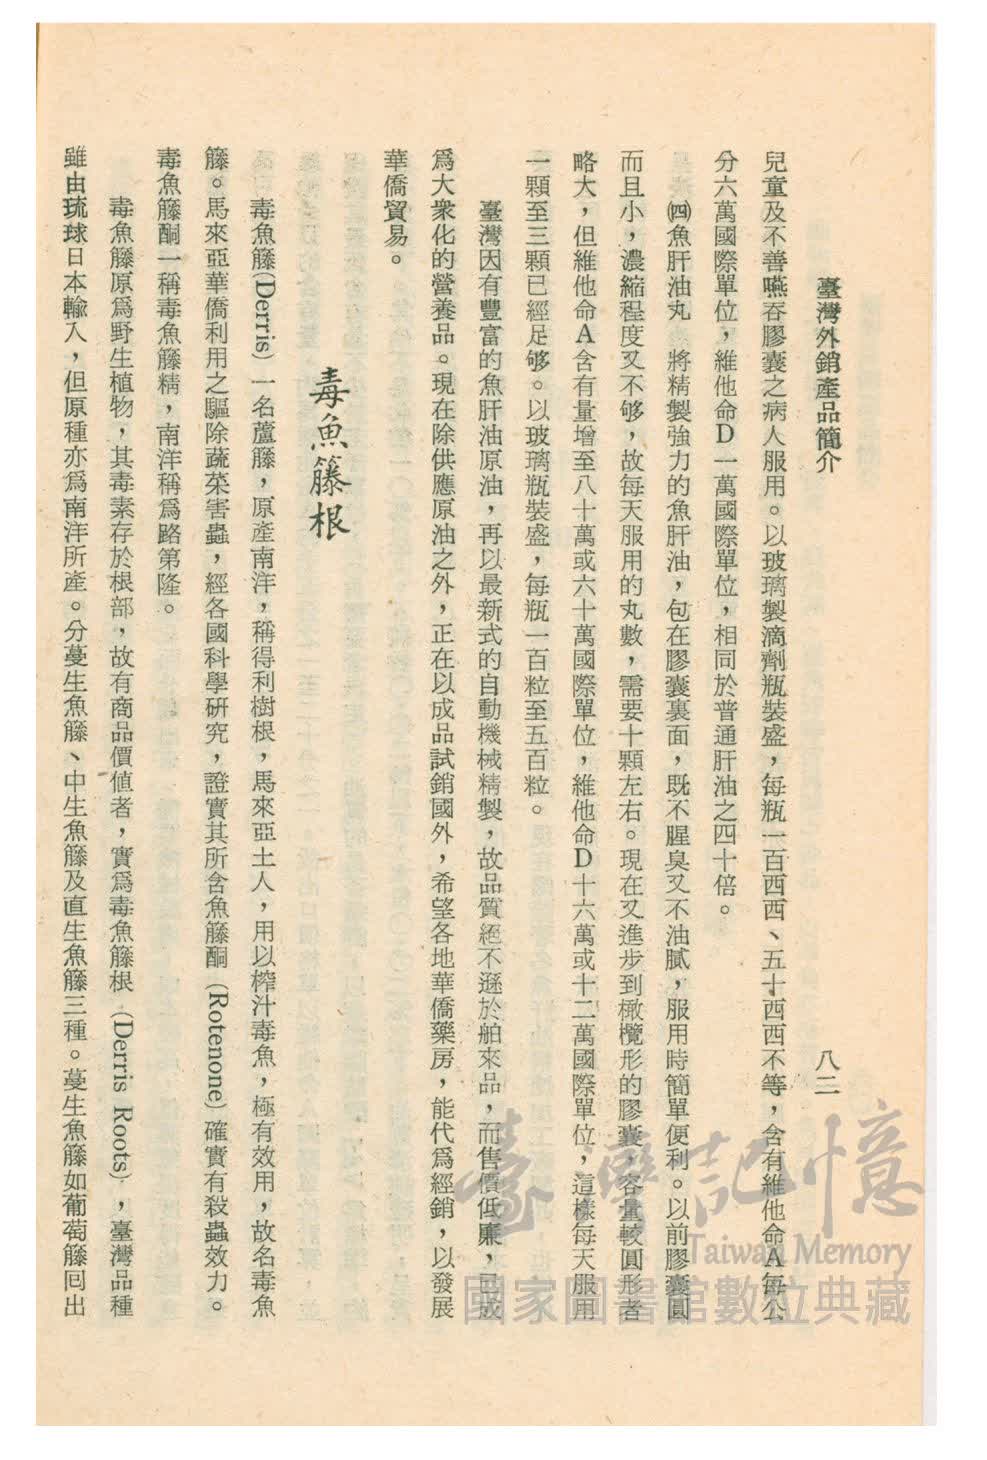 臺灣外銷產品簡介
八二
兒童及不善嚥吞膠囊之病人服用。以玻璃製滴劑瓶裝盛，每瓶一百西西、五十西西不等，含有維他命A每公
分六萬國際單位，維他命D一萬國際單位，相同於普通肝油之四十倍。
㈣魚肝油丸　將精製強力的魚肝油，包在膠囊裏面，既不腥臭又不油膩，服用時簡單便利。以前膠囊圓
而且小，濃縮程度又不够，故每天服用的丸數，需要十顆左右。現在又進步到橄欖形的膠囊，容量較圓形者
略大，但維他命A含有量增至八十萬或六十萬國際單位，維他命D十六萬或十二萬國際單位，這樣每天服用
一顆至三顆已經足够。以玻璃瓶裝盛，每瓶一百粒至五百粒。
臺灣因有豐富的魚肝油原油，再以最新式的自動機械精製，故品質絕不遜於舶來品，而售價低廉，已成
爲大衆化的營養品。現在除供應原油之外，正在以成品試銷國外，希望各地華僑藥房，能代爲經銷，以發展
華僑貿易。
毒魚籐根
毒魚籐(Derris)一名蘆籐，原產南洋，稱得利樹根，馬來亞土人，用以榨汁毒魚，極有效用，故名毒魚
籐。馬來亞華僑利用之驅除蔬菜害蟲，經各國科學研究，證實其所含魚籐酮(Rotenone)確實有殺蟲效力。
毒魚籐酮一稱毒魚籐精，南洋稱爲路第隆。
毒魚籐原爲野生植物，其毒素存於根部，故有商品價值者，實爲毒魚籐根(Derris Roots)，臺灣品種
雖由琉球日本輸入，但原種亦爲南洋所產。分蔓生魚籐、中生魚籐及直生魚籐三種。蔓生魚籐如葡萄籐同出
臺灣記憶
Taiwan Memory
國家圖書館數位典藏